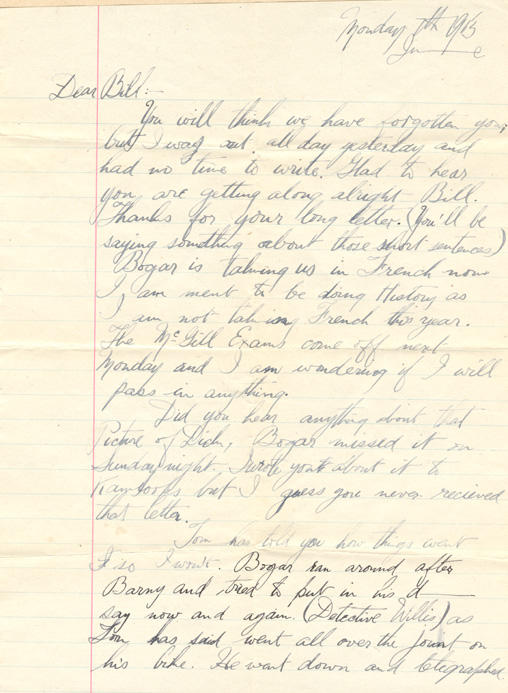 Monday 7th 1913
June
Dear Bill:-
You will think we have forgotten you,
but I was out all day yesterday and
had no time to write. Glad to hear
you are getting along alright Bill.
Thanks for your long letter. (You'll be
saying something about those short sentences)
Bogar is taking us in French now
I am ment to be doing History as
I am not taking French this year.
The McGill Exams come off next
Monday and I am wondering if I will
pass in anything.
Did you hear anything about that
Picture of Dick, Bogar missed it on
Sunday night. I wrote you about it to
Kamloops but I guess you never recieved
that letter.
Tom has told you how things went
so I wont. Bogar ran around after
Barny and tried to put in his d—
say now and again. (Detective Willis) as
Tom has said went all over the joint on
his bike. He went down and telegraphed